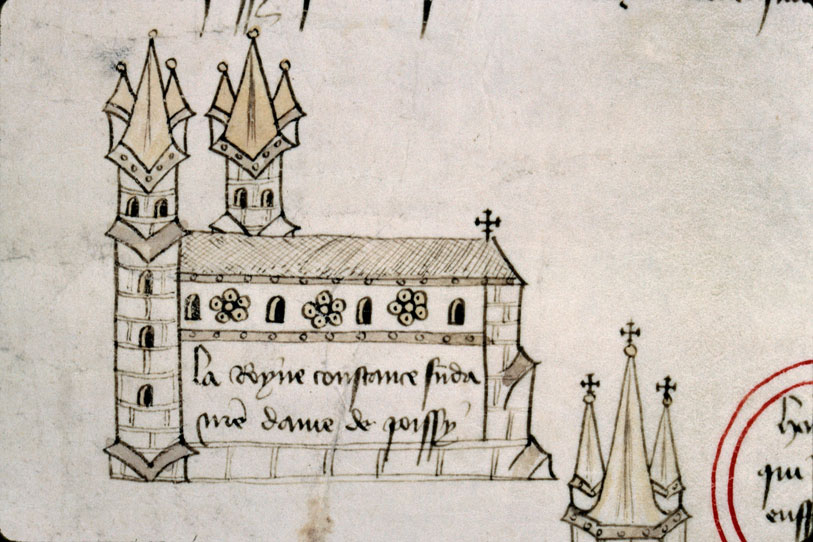 la Royne constance funda
nr̄e dame de poissy
qui